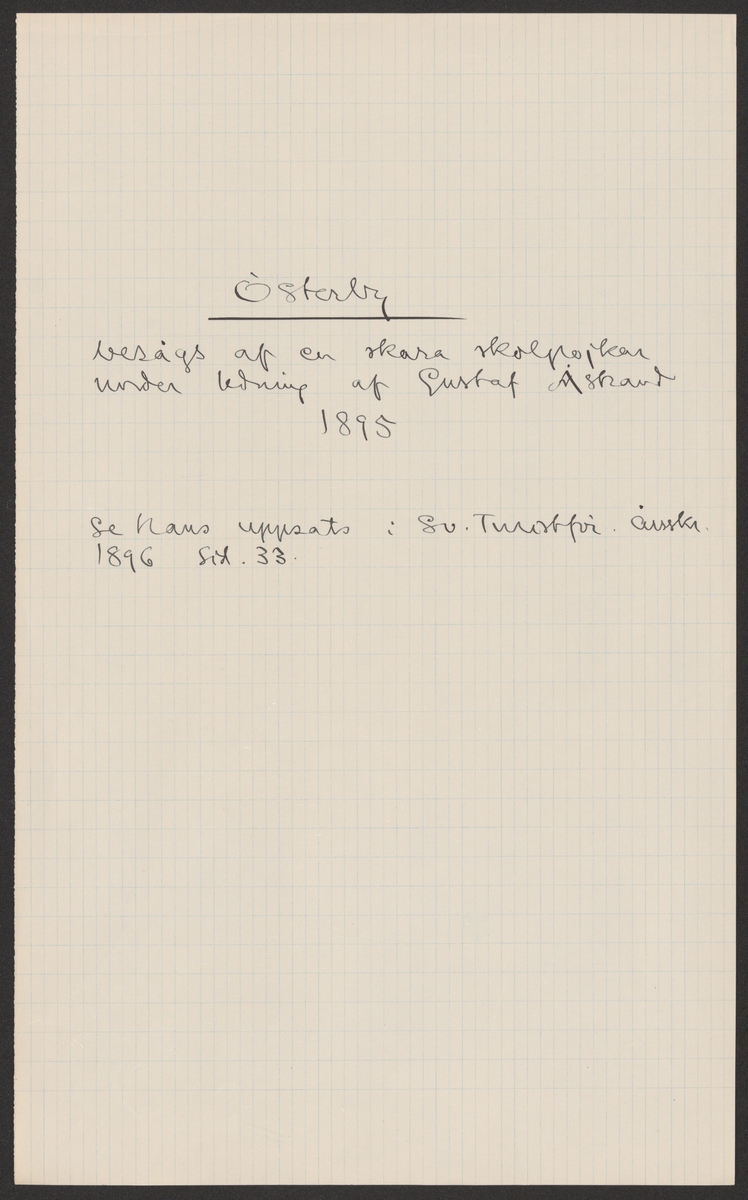 Österby
besågs af en skara skolpojkar
under ledning af Gustaf Åstrand
1895
Se hans uppsats i Sv. Turistför. årsskr.
1896 Sid. 33.